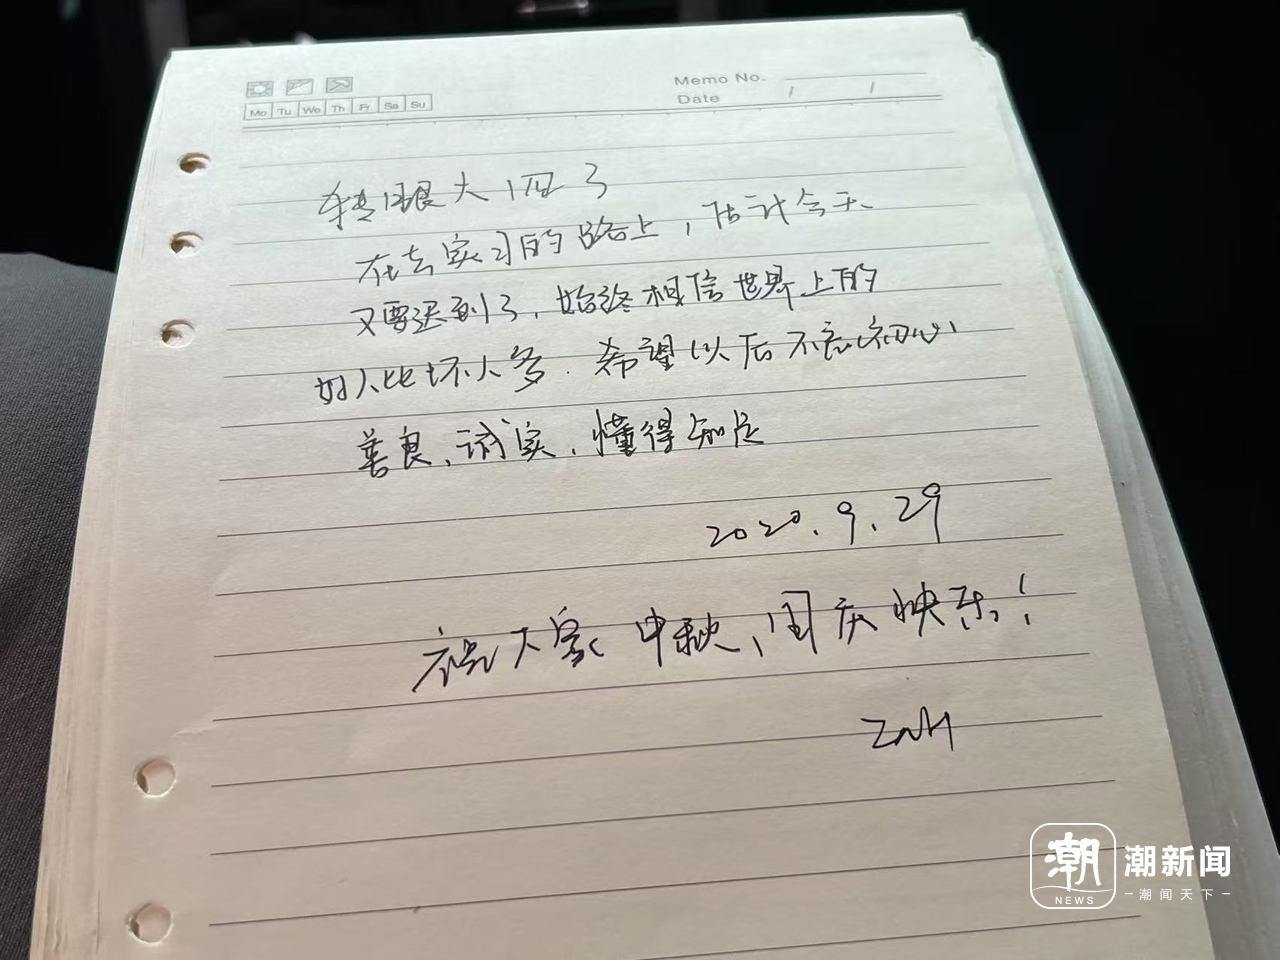 Memo No.
Mo Tu We Th Fr Sa Su
Date / /
转眼大四了
在去实习的路上，估计今天
又要迟到了，始终相信世界上的
好人比坏人多．希望以后不忘初心
善良、诚实，懂得知足
2020.9.29
祝大家中秋、国庆快乐！
ZNH
潮
NEWS
潮新闻
潮闻天下